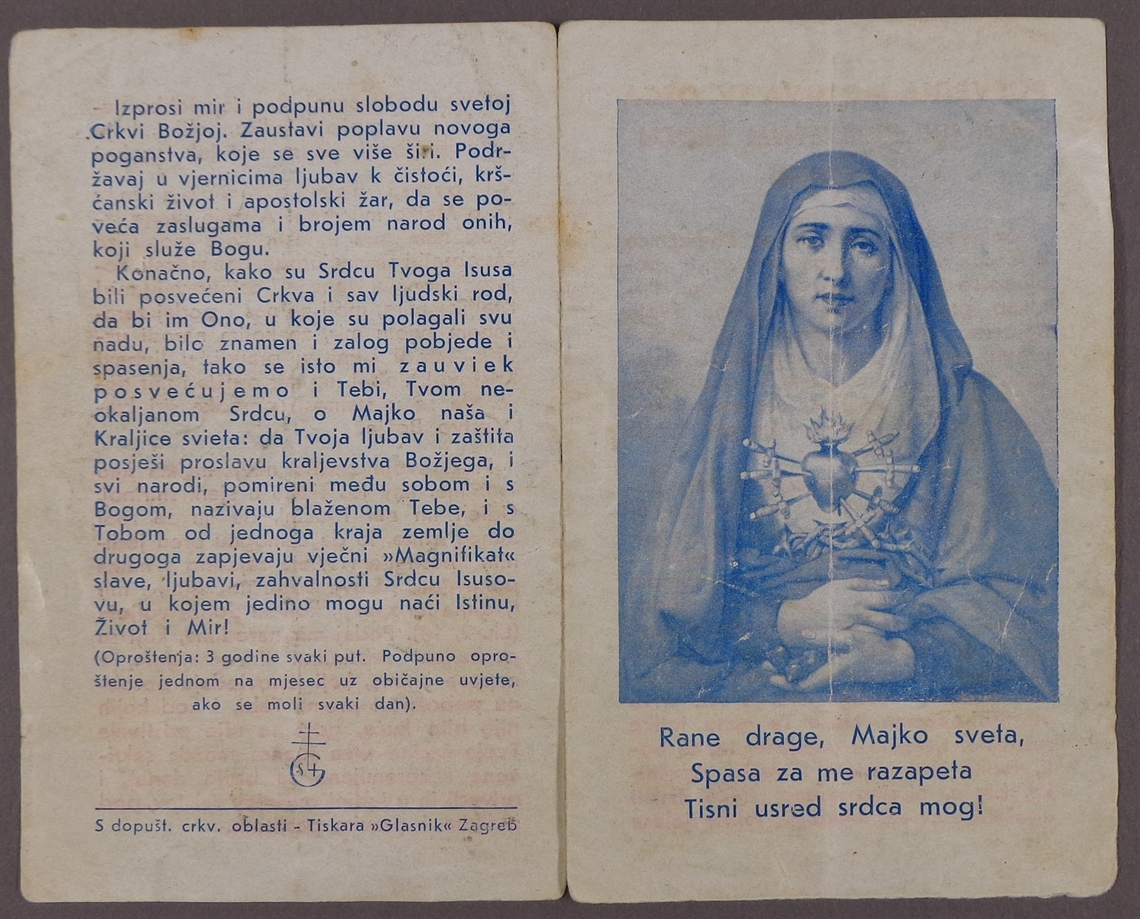 Izprosi mir i podpunu slobodu svetoj
Crkvi Božjoj. Zaustavi poplavu novoga
poganstva, koje se sve više širi. Podr-
žavaj u vjernicima ljubav k čistoći, krš-
ćanski život i apostolski žar, da se po-
veća zaslugama i brojem narod onih,
koji služe Bogu.
Konačno, kako su Srdcu Tvoga Isusa
bili posvećeni Crkva i sav ljudski rod,
da bi im Ono, u koje su polagali svu
nadu, bilo znamen i zalog pobjede i
spasenja, tako se isto mi zauviek
posvećujemo i Tebi, Tvom ne-
okaljanom Srdcu, o Majko naša i
Kraljice svieta: da Tvoja ljubav i zaštita
posješi proslavu kraljevstva Božjega, i
svi narodi, pomireni među sobom i s
Bogom, nazivaju blaženom Tebe, i s
Tobom od jednoga kraja zemlje do
drugoga zapjevaju vječni »Magnifikat«
slave, ljubavi, zahvalnosti Srdcu Isuso-
vu, u kojem jedino mogu naći Istinu,
Život i Mir!
(Oproštenja: 3 godine svaki put. Podpuno opro-
štenje jednom na mjesec uz običajne uvjete,
ako se moli svaki dan).
S dopušt. crkv. oblasti - Tiskara »Glasnik« Zagreb
Rane drage, Majko sveta,
Spasa za me razapeta
Tisni usred srdca mog!